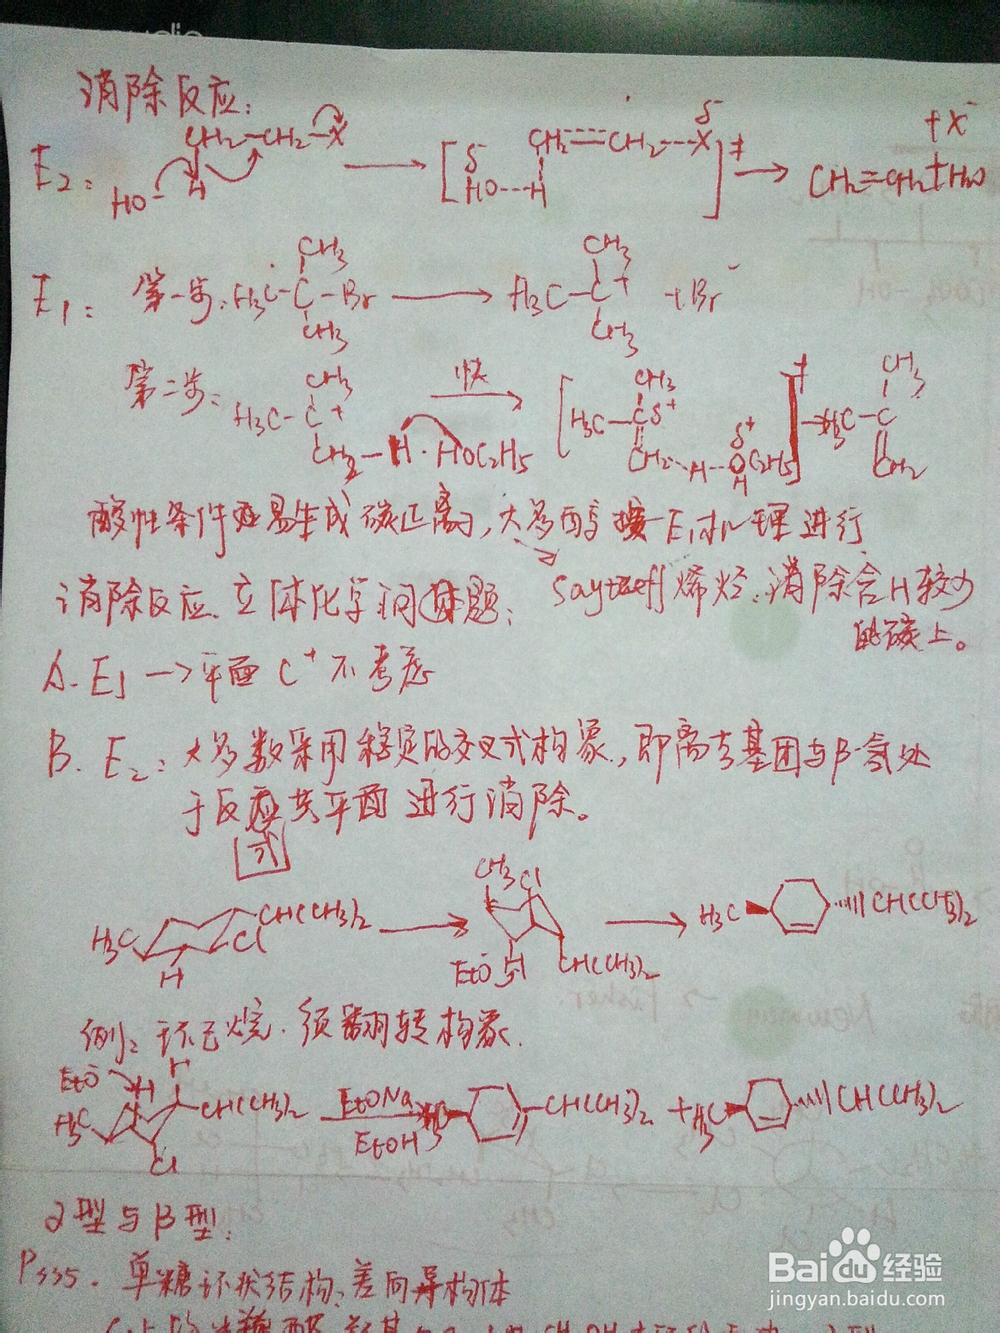 消除反应:
E2: HO CH2-CH2-X H → [δ- HO---H CH2=CH2---X δ-]‡ → CH2=CH2+H2O +X-
E1: 第一步: H3C-C(CH3)(CH3)-Br → H3C-C+(CH3)(CH3) +Br-
第二步: H3C-C+(CH3)CH2-H·HOC2H5 快 → [H3C-C(CH3)δ+ CH2---H---OC2H5 δ+ H]‡ → H3C-C(CH3)=CH2
酸性条件更易生成碳正离子,大多醇按E1机理进行
消除反应 立体化学问题:
Saytzeff烯烃:消除含H较少
的碳上。
A. E1→平面C+不考虑
B. E2:大多数采用稳定的交叉式构象,即离去基团与β氢处
于反应共平面进行消除。
式
H3C H Cl CH(CH3)2 → CH3 Cl EtO- H CH(CH3)2 → H3C CH(CH3)2
例:环己烷.须翻转构象.
EtO- H H H3C CH(CH3)2 Cl EtONa EtOH H3C CH(CH3)2 + H3C CH(CH3)2
α型与β型:
P335. 单糖环状结构:差向异构体
Baidu经验
jingyan.baidu.com